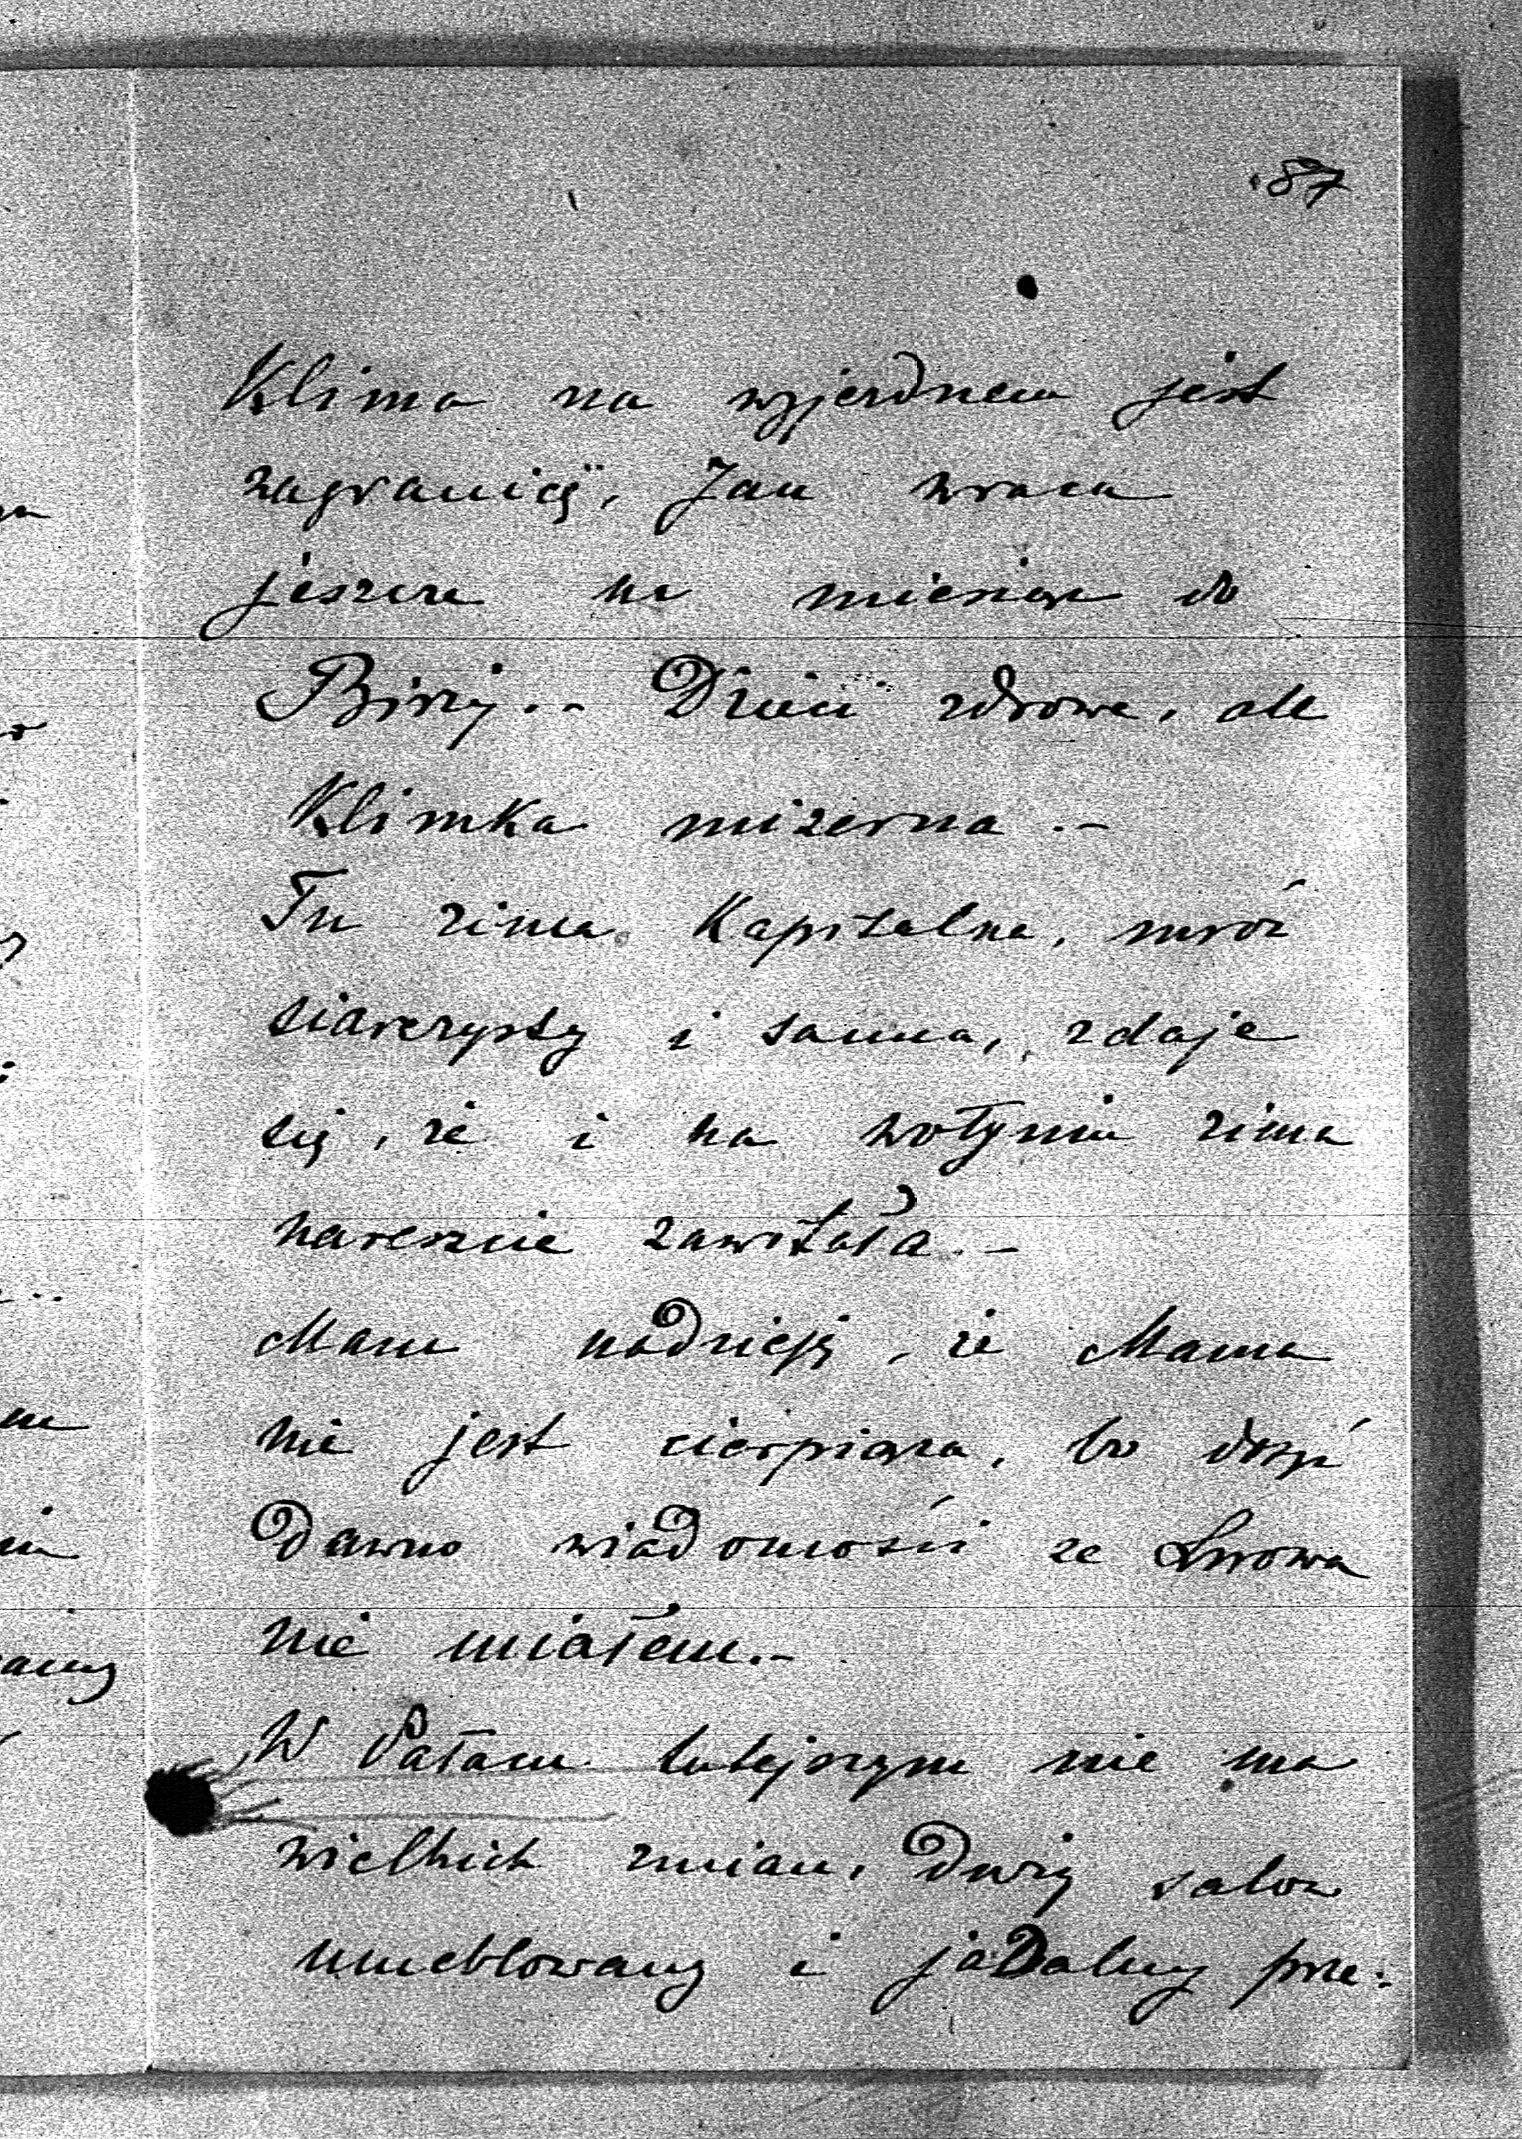 87
Klima na wyjezdnem jest
zagranicę, Jan wraca
jeszcze na miesiąc do
Birży.. Dzieci zdrowe, ale
Klimka mizerna.-
Tu zima kapitalna, mróz
siarczysty i sanna, zdaje
się, że i na Wołyniu zima
nareszcie zawitała.-
Mam nadzieję, że Mama
nie jest cierpiąca, bo dosyć
dawno wiadomości ze Lwowa
nie miałem.-
W Pałacu tutejszym nie ma
wielkich zmian, Duży salon
umeblowany i jadalny prze-